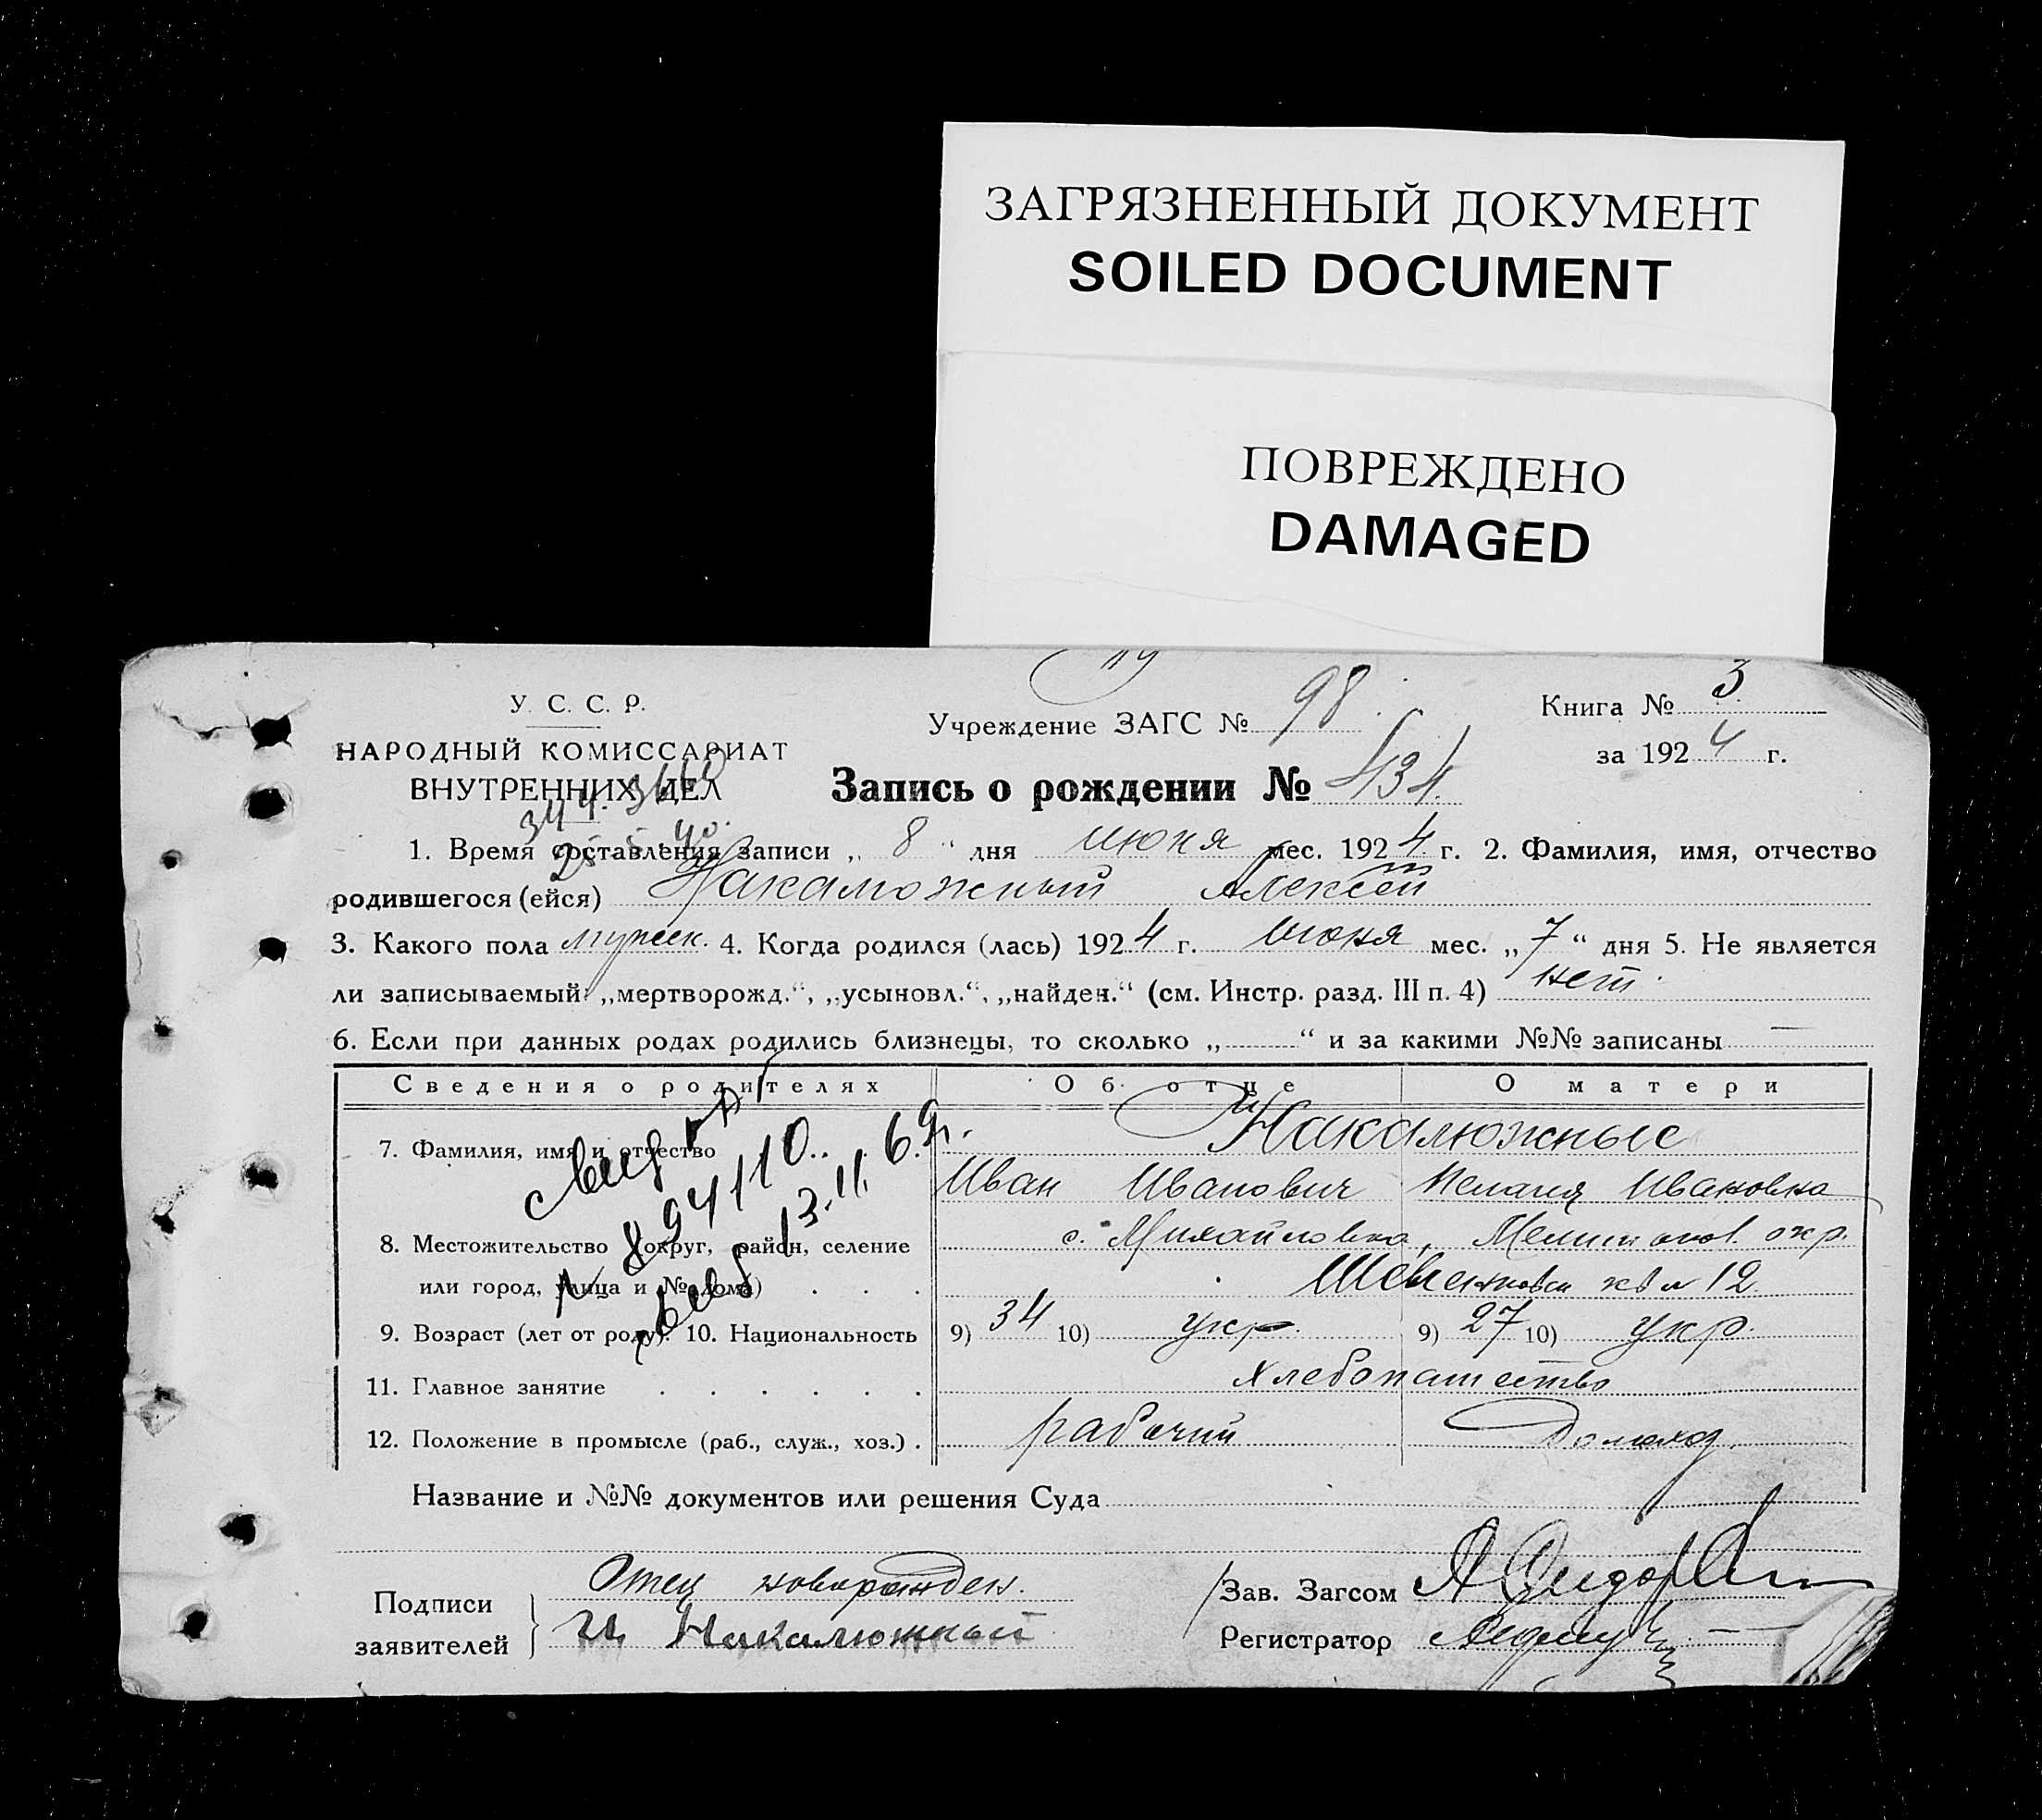 ЗАГРЯЗНЕННЫЙ ДОКУМЕНТ
SOILED DOCUMENT
ПОВРЕЖДЕНО
DAMAGED
У. С. С. Р.
НАРОДНЫЙ КОМИССАРИАТ
ВНУТРЕННИХ ДЕЛ
Учреждение ЗАГС № 98
Книга № 3
за 1924 г.
Запись о рождении № 434
1. Время составления записи „ 8 “ дня июня мес. 1924 г. 2. Фамилия, имя, отчество
родившегося (ейся) Накалюжный Алексей
3. Какого пола мужск. 4. Когда родился (лась) 1924 г. июня мес. „ 7 “ дня 5. Не является
ли записываемый: „мертворожд.“, „усыновл.“, „найден.“ (см. Инстр. разд. III п. 4) нет
6. Если при данных родах родились близнецы, то сколько „ “ и за какими №№ записаны —
Сведения о родителях Об отце О матери
7. Фамилия, имя и отчество Накалюжные
Иван Иванович Пелагея Ивановна
8. Местожительство (округ, район, селение с. Михайловка, Мелитопол. окр.
или город, улица и № дома) № 12
9. Возраст (лет от роду). 10. Национальность 9) 34 10) укр. 9) 27 10) укр.
11. Главное занятие хлебопашество
12. Положение в промысле (раб., служ., хоз.) рабочий домохоз.
13.11.69г.
Название и №№ документов или решения Суда
Подписи заявителей Отец новорожден.
И Накалюжный
Зав. Загсом
Регистратор